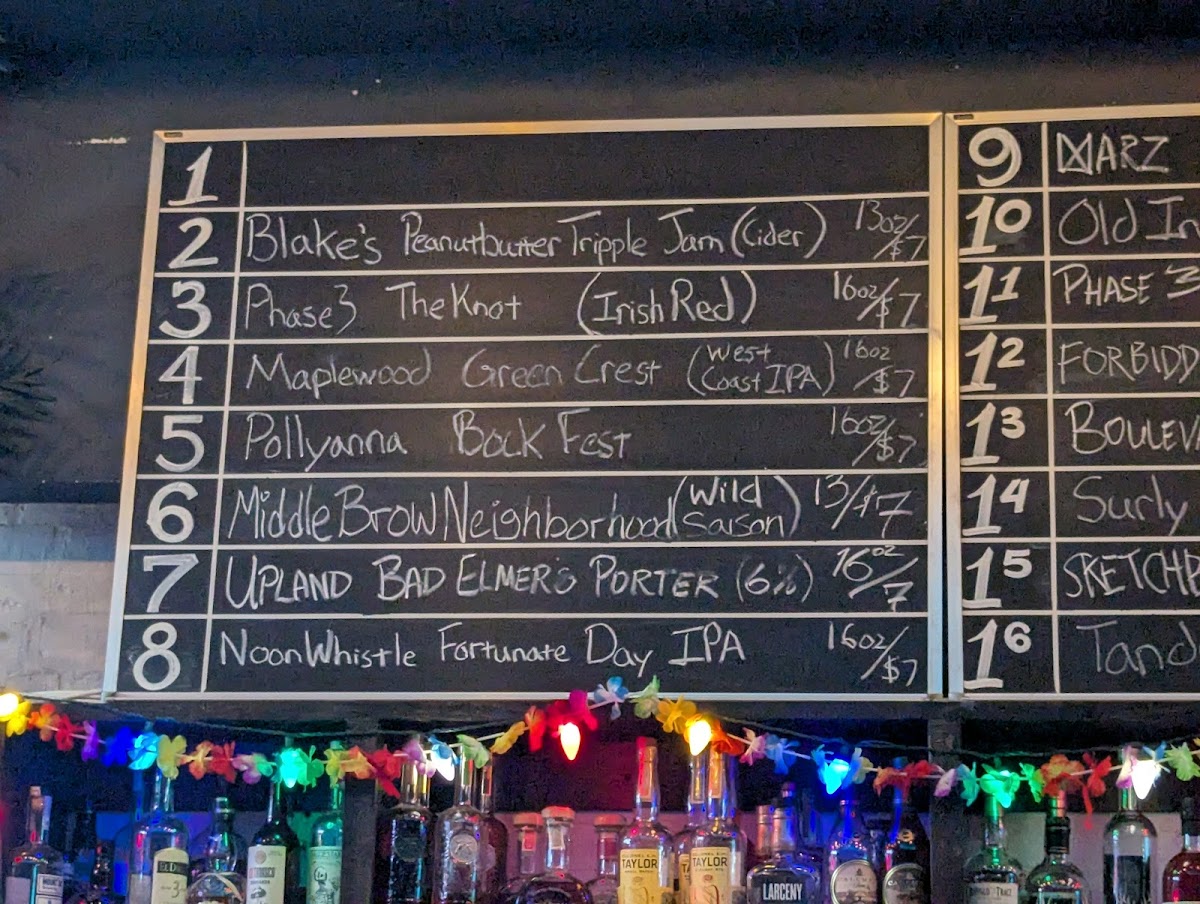 1
2 Blake's Peanutbutter Tripple Jam (Cider) 13oz/$7
3 Phase 3 The Knot (Irish Red) 16oz/$7
4 Maplewood Green Crest (West Coast IPA) 16oz/$7
5 Pollyanna Bock Fest 16oz/$7
6 Middle Brow Neighborhood (Wild Saison) 13/$7
7 UPLAND BAD ELMER'S PORTER (6%) 16oz/7
8 NoonWhistle Fortunate Day IPA 16oz/$7
9 MARZ
10 Old In
11 PHASE 3
12 FORBIDD
13 BOULEV
14 Surly
15 SKETCHB
16 Tand
TAYLOR
TAYLOR
LARCENY